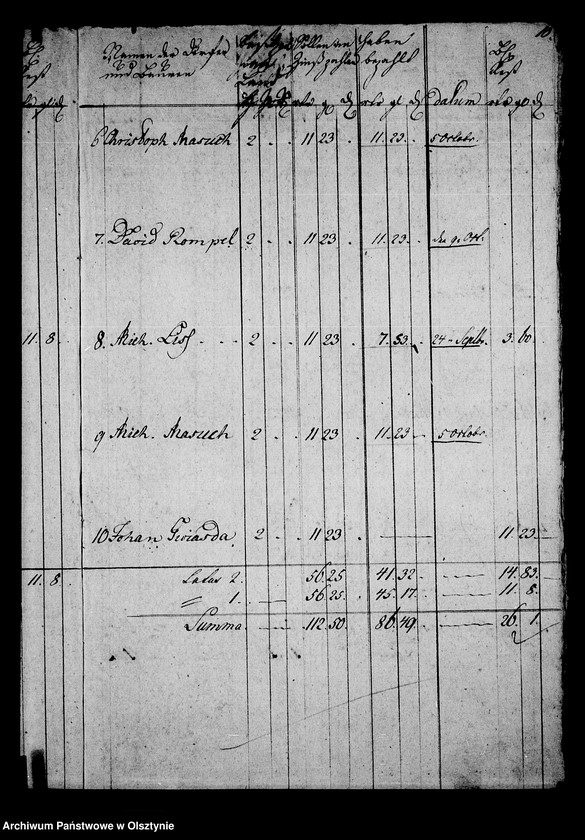 10.
Rest
Namen der Dörfer
und Bauern
Sollen an
Zinß zahlen
haben
bezahlt
Rest
rtlr gl d
rtlr gl d
datum
rtlr gl d
6 Christoph Masuch 2 . . 11 23 . 11. 23. . 5 Octobr.
7. David Rompel 2 . . 11 23 . 11. 23. . den 9. Octb.
11. 8. 8. Mich. Liss . - - . 2 . . 11 23 7. 53. 24 Septbr. 3. 60.
9 Mich. Masuch 2 . . 11 23 11. 23 - 5 Octobr.
10 Johan Gwiasda 2 . . 11 23. — 11. 23
11. 8. Latus 2. 56. 25 41. 32 — 14. 83.
" 1. — 56. 25. 45. 17. — 11. 8.
Summa. — 112. 50. 86. 49. — 26. 1.
Archiwum Państwowe w Olsztynie